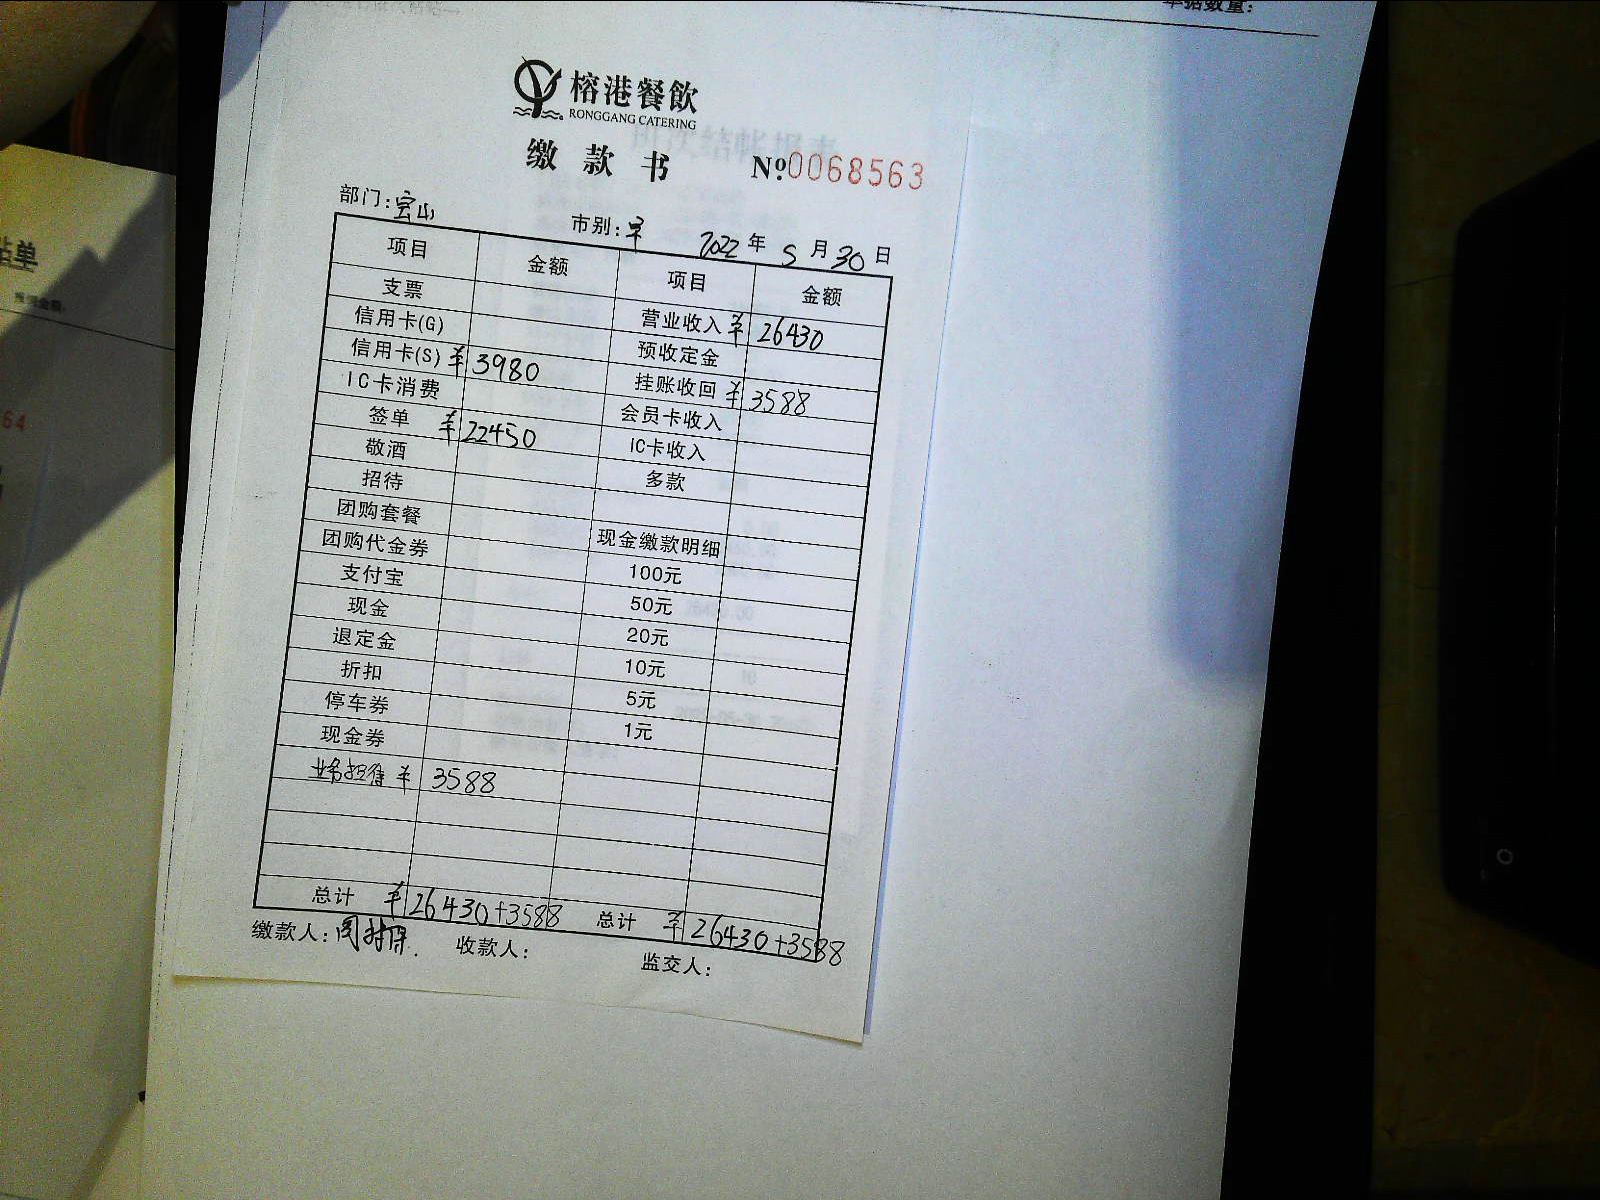 单据数量:
榕港餐飲
RONGGANG CATERING
缴款书 №0068563
部门:宝山 市别:早 2022年5月30日
项目 金额 项目 金额
支票 营业收入 ¥26430
信用卡(G) 预收定金
信用卡(S) ¥3980 挂账收回 ¥3588
IC卡消费 会员卡收入
签单 ¥22450 IC卡收入
敬酒 多款
招待
团购套餐 现金缴款明细
团购代金券 100元
支付宝 50元
现金 20元
退定金 10元
折扣 5元
停车券 1元
现金券
业务招待 ¥3588
总计 ¥26430+3588 总计 ¥26430+3588
缴款人: 收款人: 监交人:
单
64